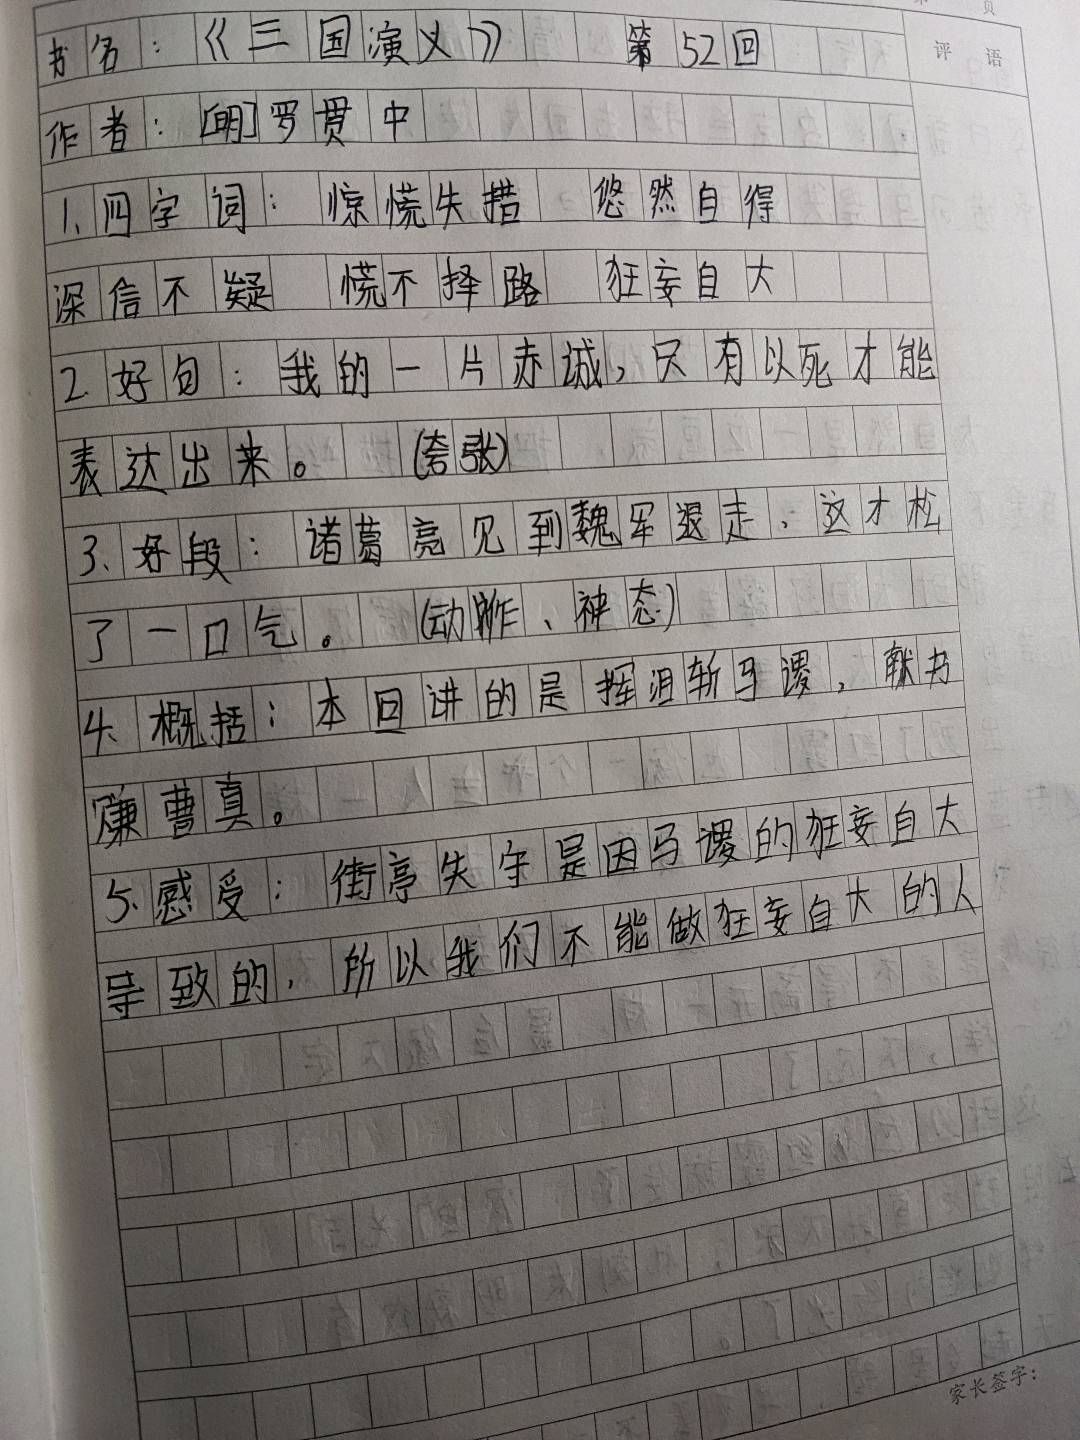 第 页
书名：《三国演义》 第52回
评语
作者：[明]罗贯中
1、四字词：惊慌失措 悠然自得
深信不疑 慌不择路 狂妄自大
2、好句：我的一片赤诚，只有以死才能
表达出来。(夸张)
3、好段：诸葛亮见到魏军退走，这才松
了一口气。(动作、神态)
4、概括：本回讲的是挥泪斩马谡，献书
赚曹真。
5、感受：街亭失守是因马谡的狂妄自大
导致的，所以我们不能做狂妄自大的人
家长签字：